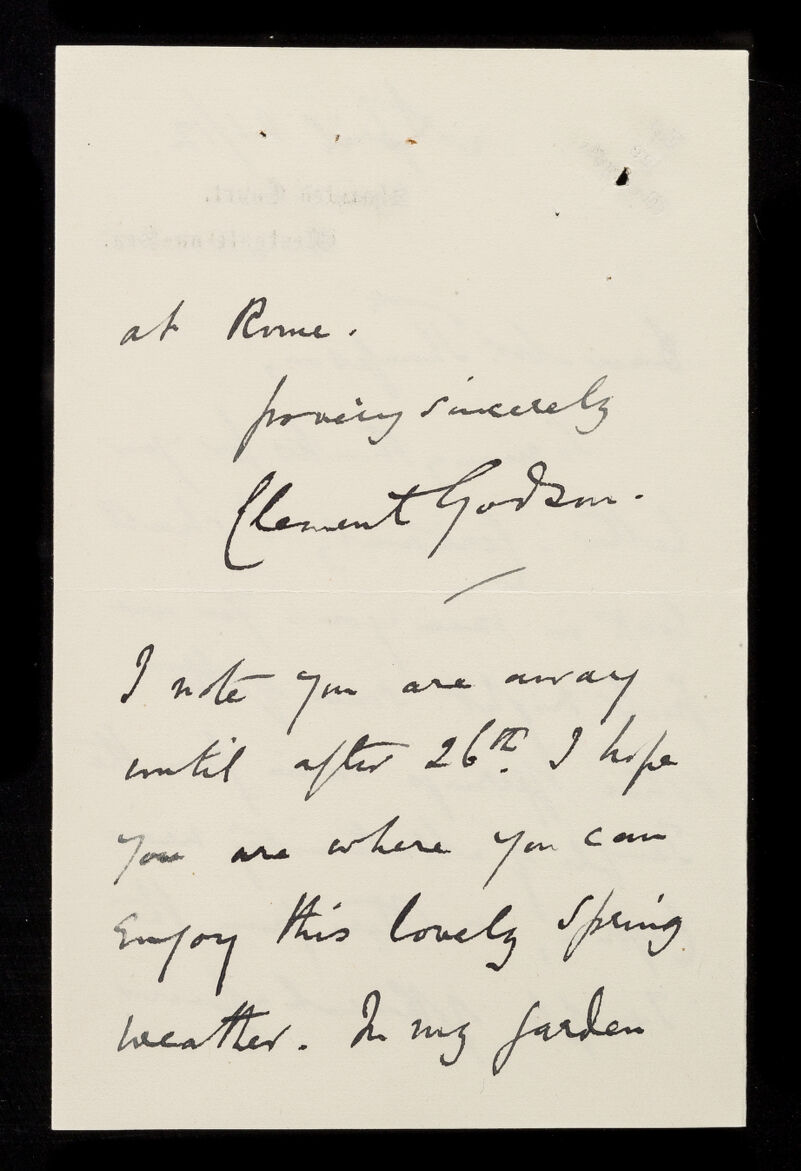 at Rome.
sincerely
Clement Godson.
I note you are away
until after 26th. I hope
you are where you can
enjoy this lovely spring
weather. In my garden